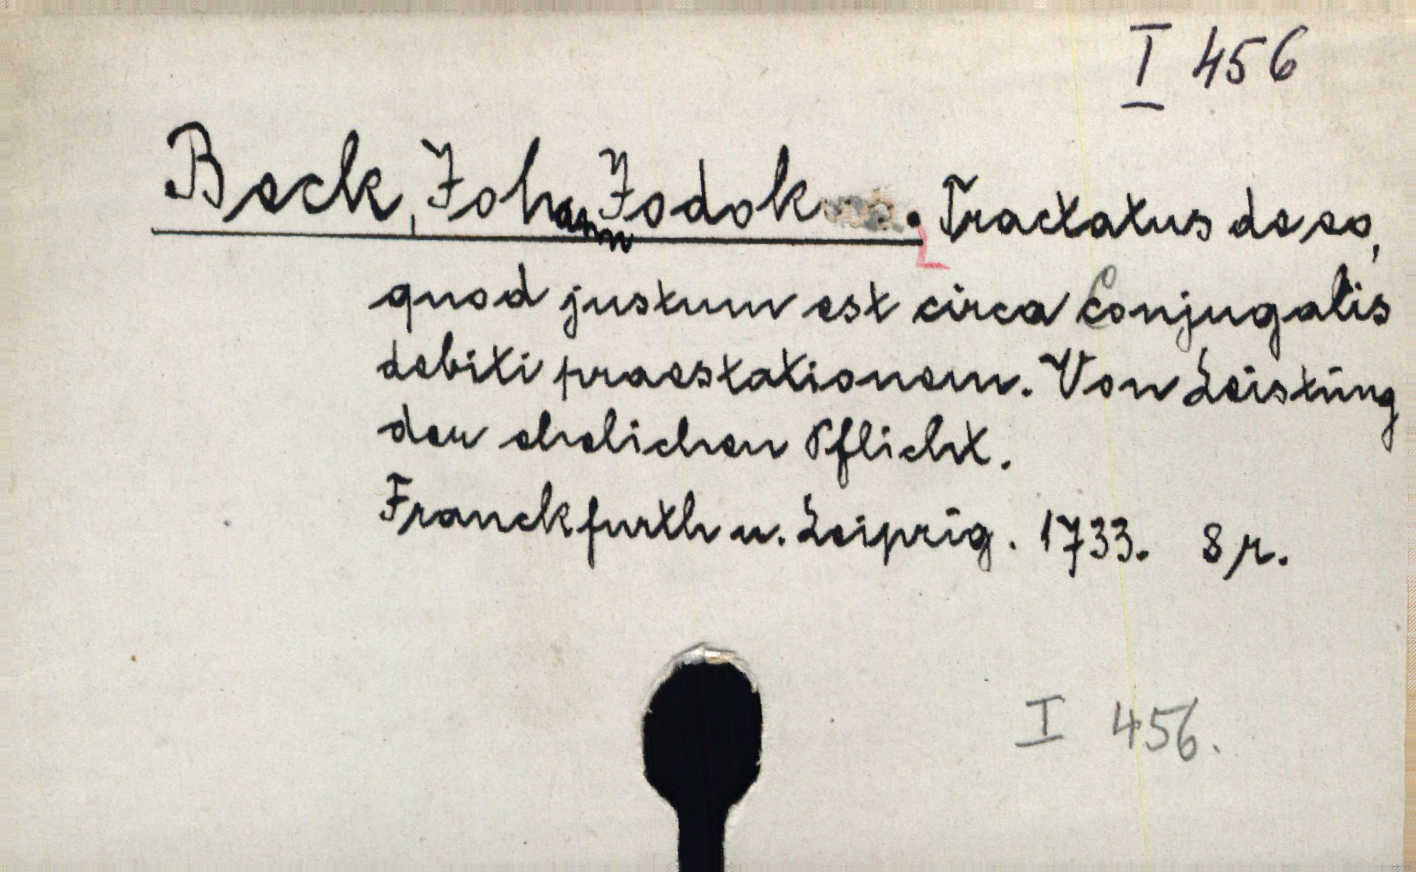 I 456
Beck, Johann Jodok. Tractatus de eo,
quod justum est circa conjugalis
debiti praestationem. Von Leistung
der ehelichen Pflicht.
Franckfurth u. Leipzig. 1733. 8 r.
I 456.